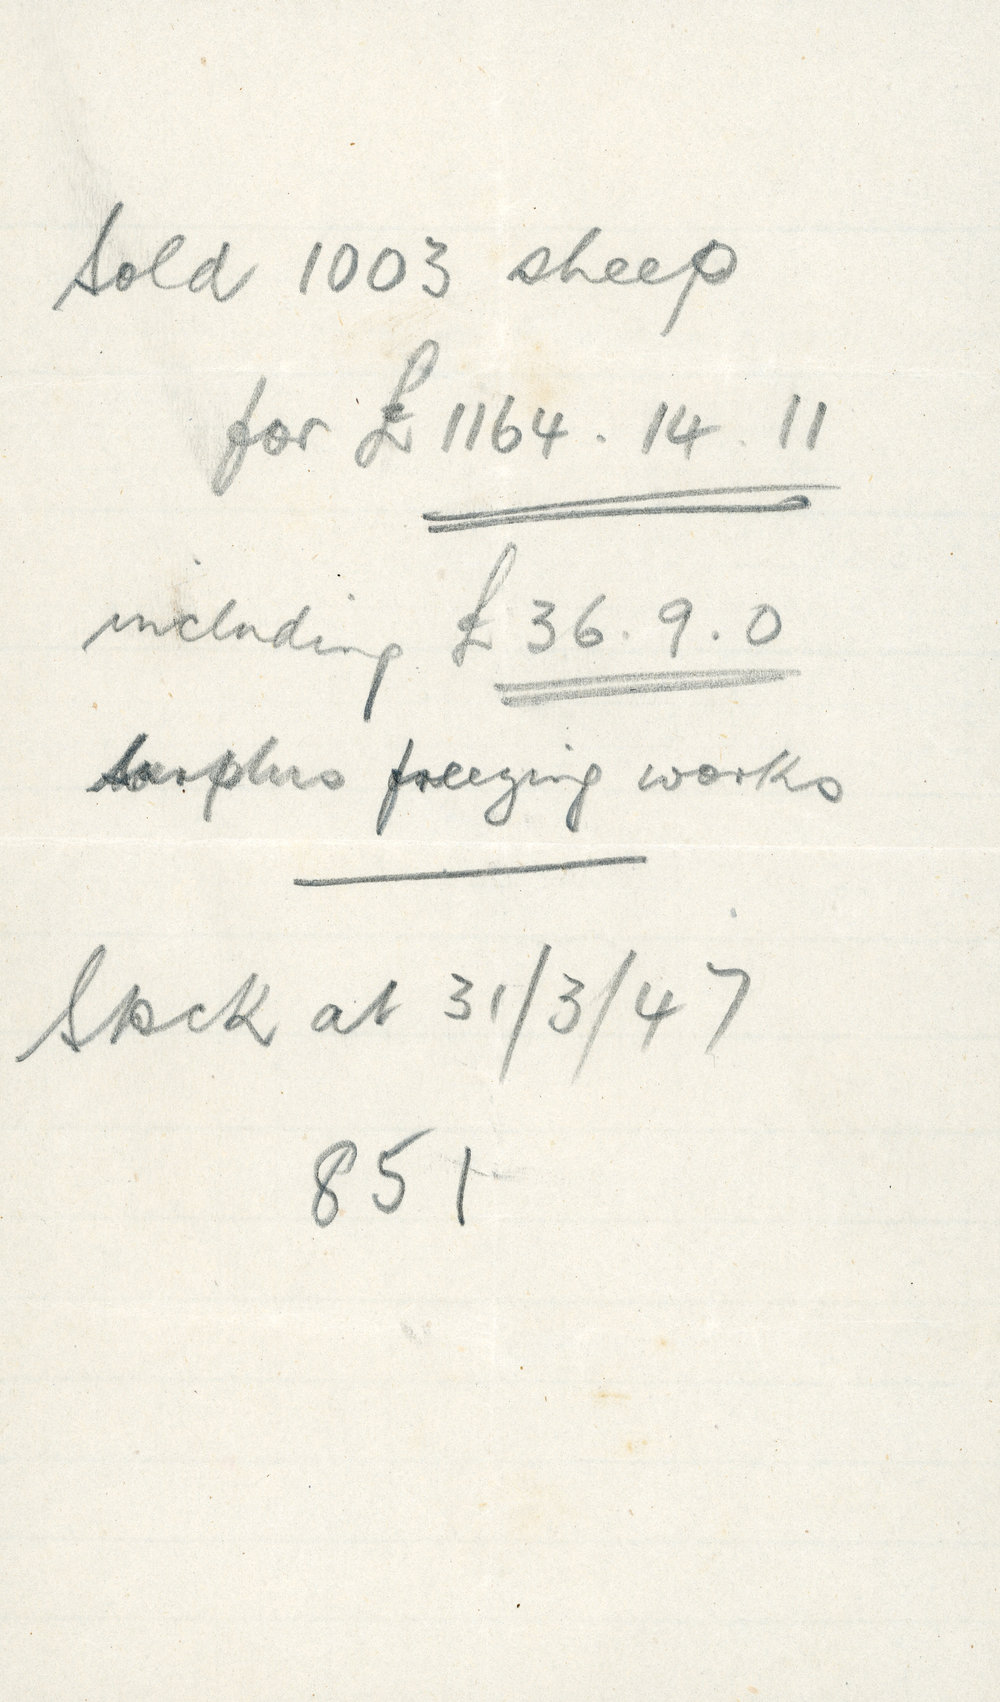 Sold 1003 sheep
for £1164 . 14 . 11
including £36 . 9 . 0
surplus freezing works
Stock at 31/3/47
851